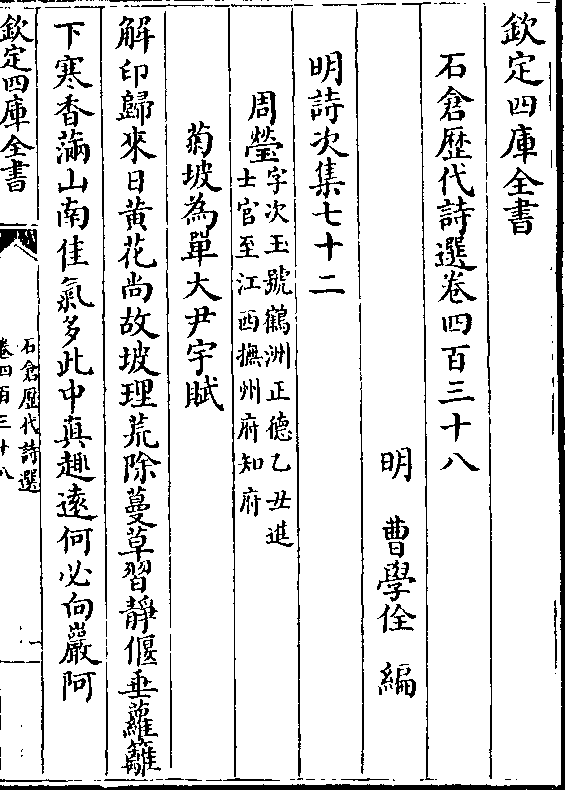 欽定四庫全書
石倉歴代詩選卷四百三十八
明 曹學佺 編
明詩次集七十二
周瑩字次玉號鶴洲正德乙丑進
士官至江西撫州府知府
菊坡為單大尹宇賦
解印歸來日黄花尚故坡理荒除蔓草習靜偃垂蘿籬
下寒香滿山南佳氣多此中真趣逺何必向巖阿
欽定四庫全書
石倉歴代詩選
卷四百三十八
一